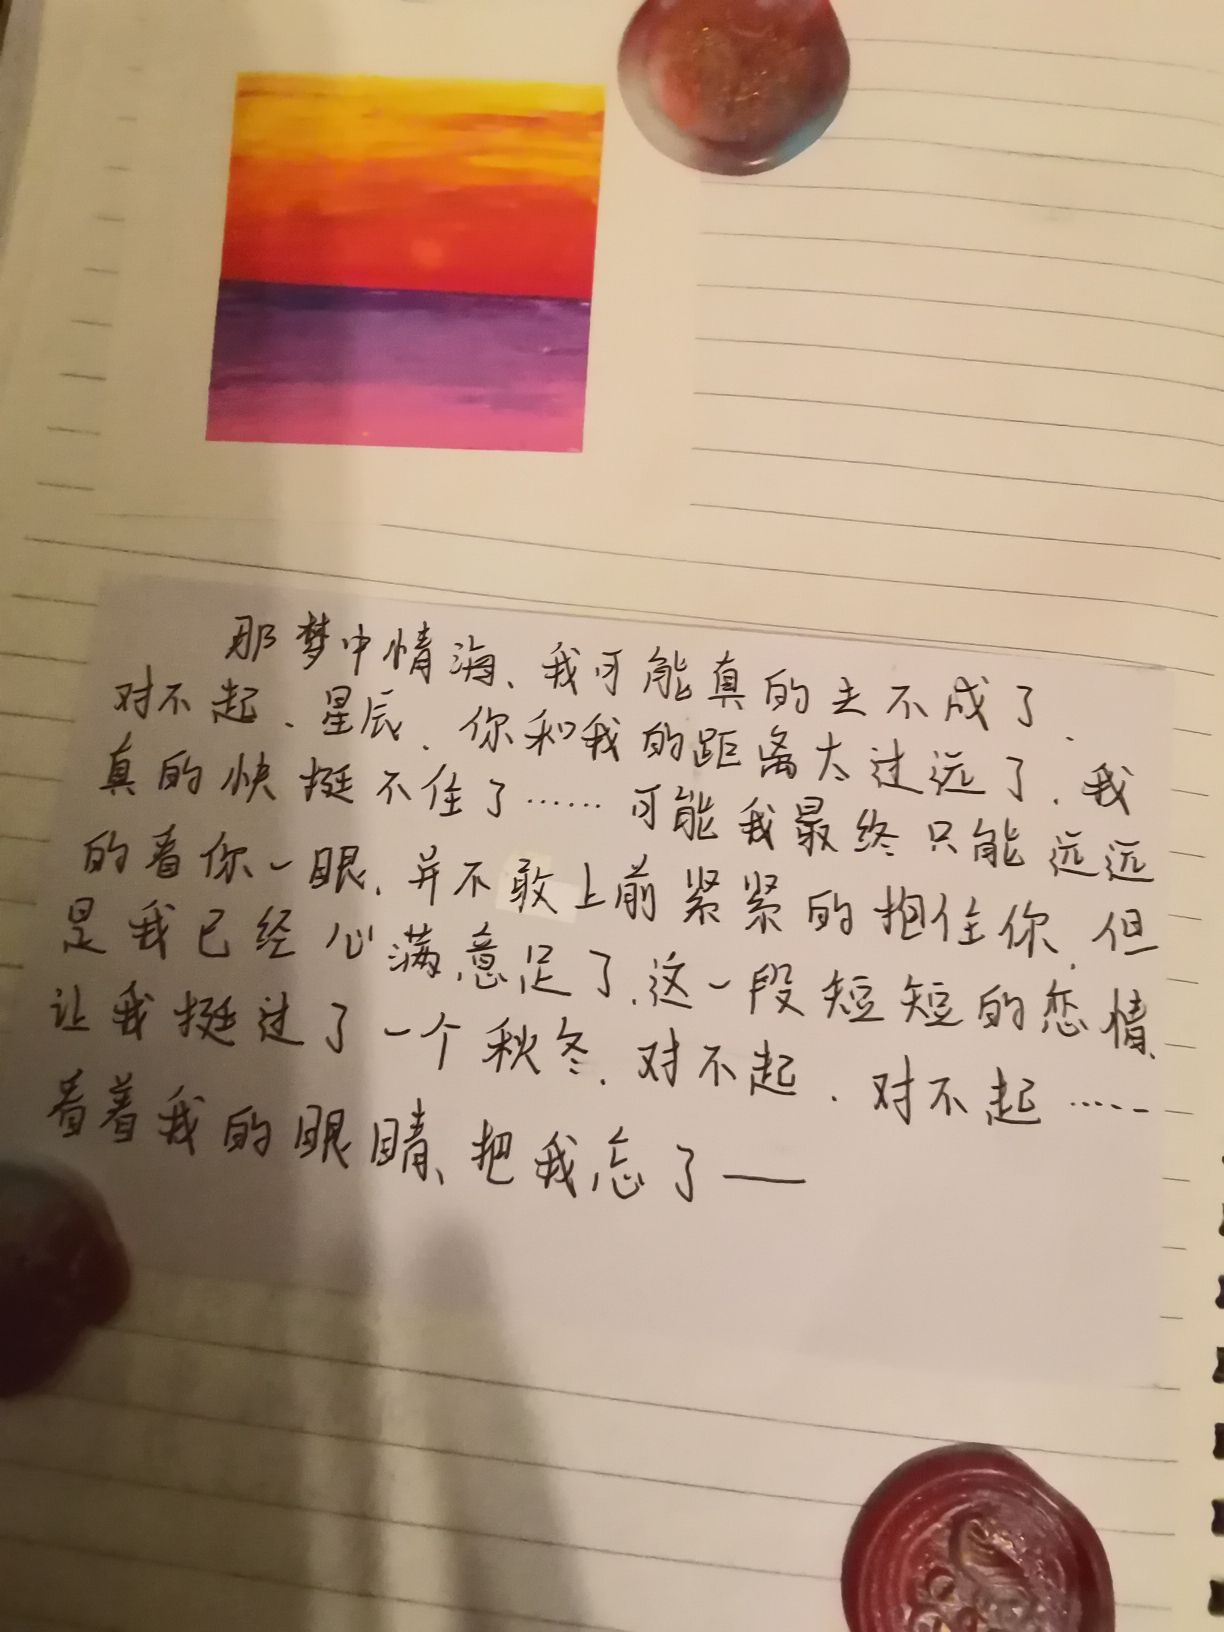 那梦中情海、我可能真的去不成了、
对不起、星辰、你和我的距离太过远了、我
真的快挺不住了……可能我最终只能远远
的看你一眼、并不敢上前紧紧的抱住你、但
是我已经心满意足了、这一段短短的恋情、
让我挺过了一个秋冬、对不起、对不起……
看着我的眼睛、把我忘了——